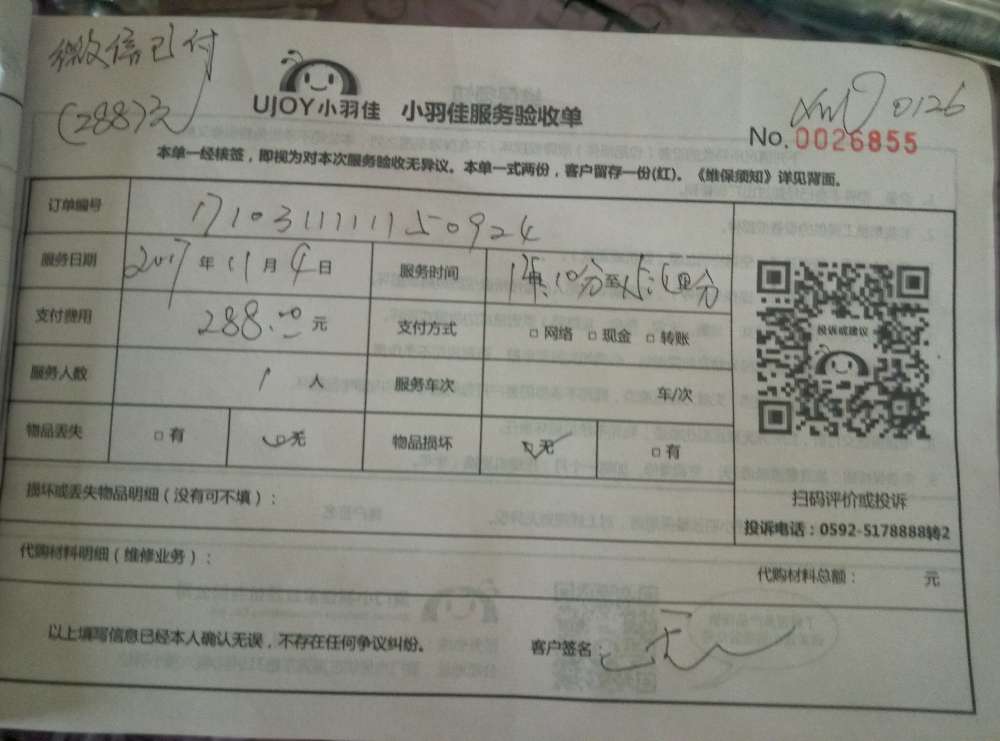 微信已付
(288)元
UJOY小羽佳 小羽佳服务验收单
0126
No. 0026855
本单一经核签，即视为对本次服务验收无异议。本单一式两份，客户留存一份(红)。《维保须知》详见背面。
订单编号 171031111150924
服务日期 2017年11月4日 服务时间 时10分至15时分
支付费用 288.00元 支付方式 □网络 □现金 □转账
服务人数 1人 服务车次 车/次
物品丢失 □有 □无 物品损坏 □无 □有
投诉或建议
扫码评价或投诉
投诉电话：0592-5178888转2
损坏或丢失物品明细（没有可不填）：
代购材料明细（维修业务）：
代购材料总额： 元
以上填写信息已经本人确认无误，不存在任何争议纠纷。 客户签名：